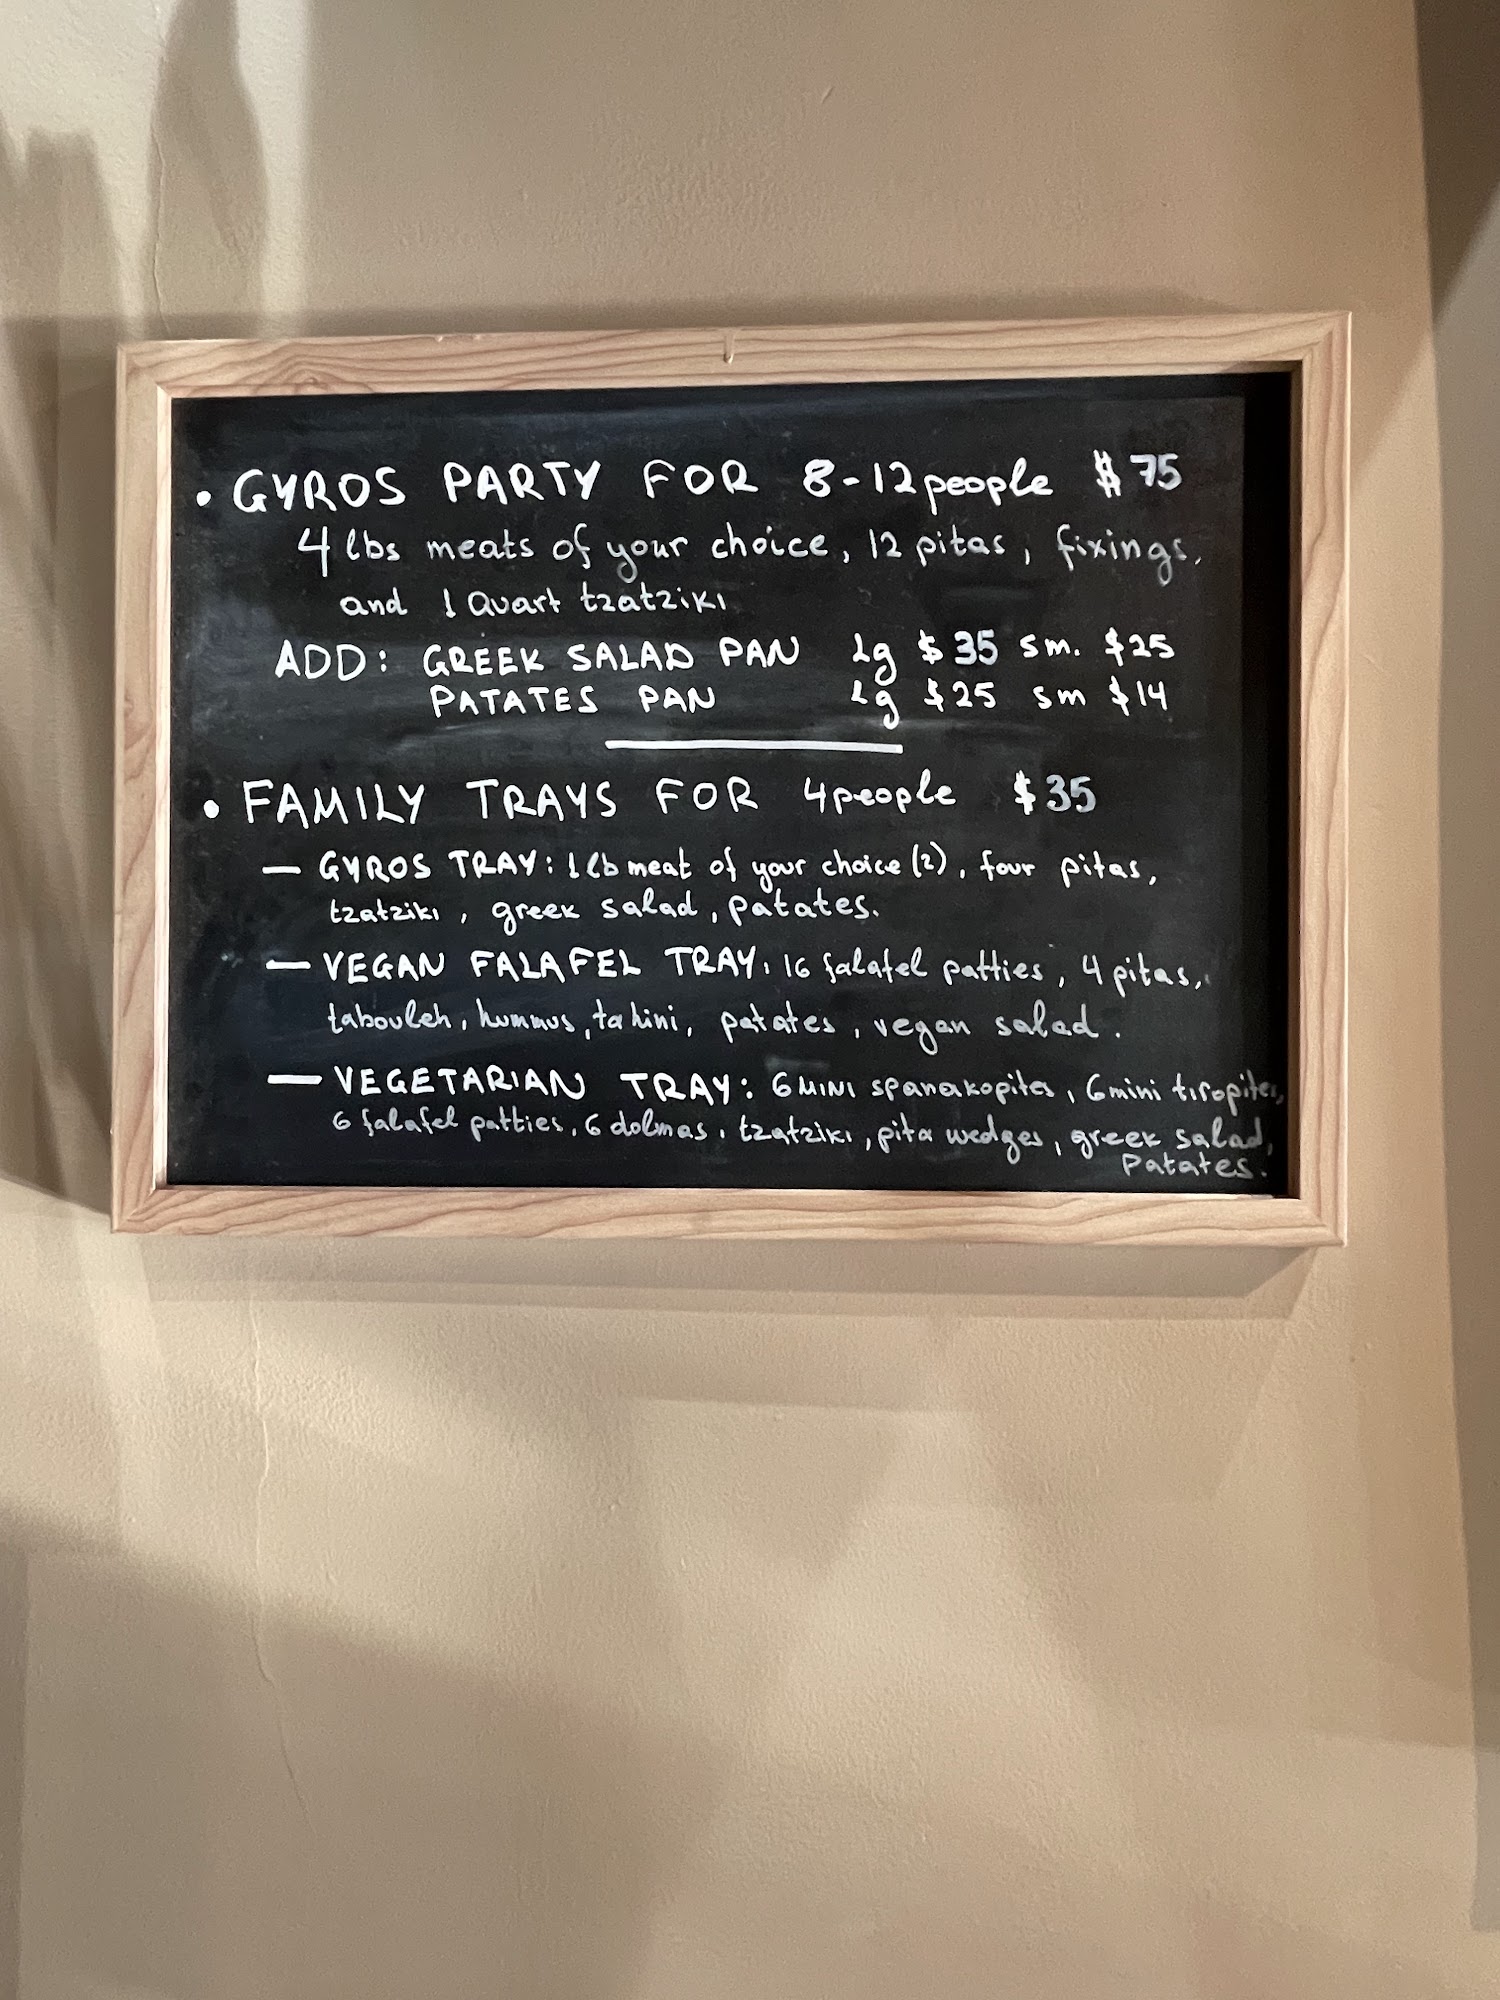 • GYROS PARTY FOR 8-12 people $75
4 lbs meats of your choice, 12 pitas, fixings,
and 1 Quart tzatziki
ADD: GREEK SALAD PAN Lg $35 sm. $25
PATATES PAN Lg $25 sm $14
• FAMILY TRAYS FOR 4 people $35
— GYROS TRAY: 1 lb meat of your choice (2), four pitas,
tzatziki, greek salad, patates.
— VEGAN FALAFEL TRAY: 16 falafel patties, 4 pitas,
tabouleh, hummus, tahini, patates, vegan salad.
— VEGETARIAN TRAY: 6 MINI spanakopites, 6 mini tiropites,
6 falafel patties, 6 dolmas, tzatziki, pita wedges, greek salad,
Patates.